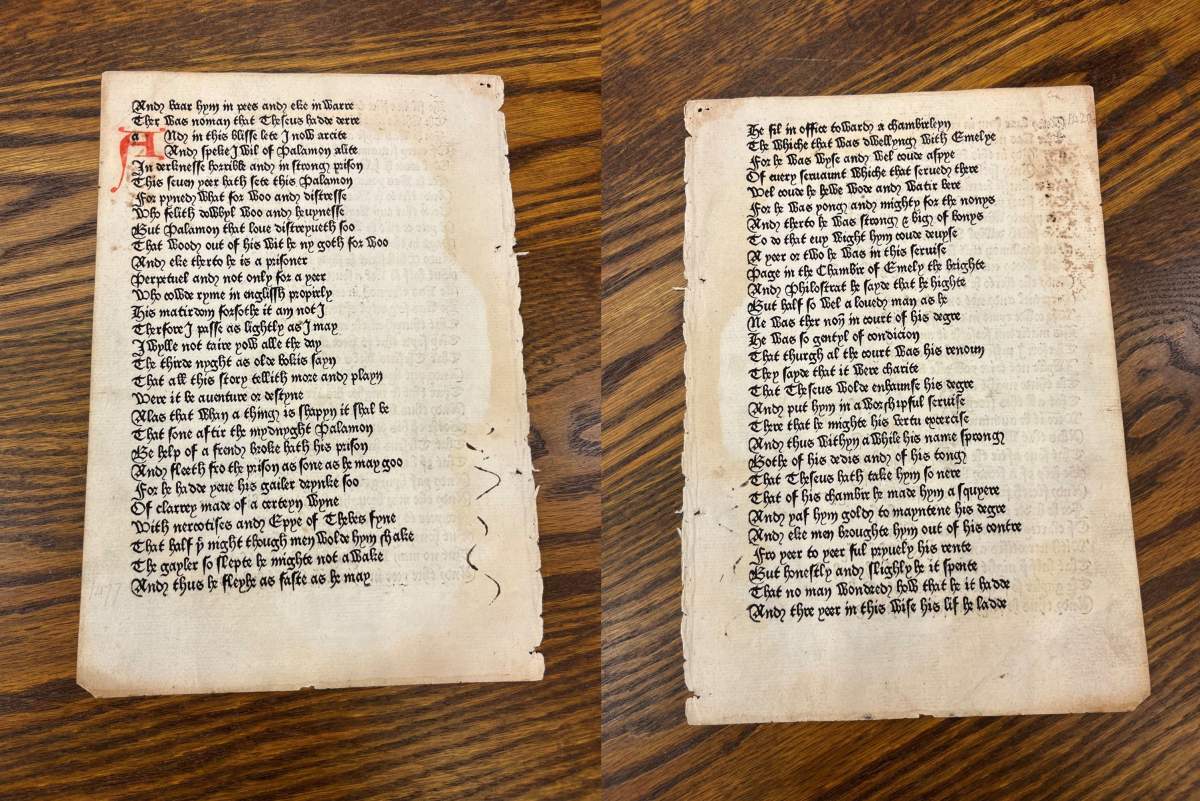 And baar hym in pees and eke in warre
Ther was noman that Theseus hadde derre
And in this blisse lete I now arcite
And speke I wil of Palamon alite
In derknesse horrible and in strong prison
This seuen yeer hath sete this Palamon
For pyned what for woo and distresse
Who felith dowbyl woo and heuynesse
But Palamon that loue distreyueth soo
That woody out of his wit he ny goth for woo
And eke therto he is a prisoner
Perpetuel and not only for a yeer
Who cowde ryme in englissh propirly
His matirdom forsothe it am not I
Therfore I passe as lightly as I may
I wylle not tarie yow alle the day
The thirde nyght as olde bokis sayn
That all this story tellith more and playn
Were it be auenture or destyne
Alas that whan a thing is shapyn it shal be
That sone aftir the mydnyght Palamon
Be help of a frend broke hath his prison
And fleeth fro the prison as sone as he may goo
For he hadde yeue his gailer drynke soo
Of clarrey made of a certeyn wyne
With nercotises and Eppe of Thebes fyne
That half þe night though men wolde hym shake
The gayler so slepte he mighte not a wake
And thus he fleyhe as faste as he may
He fil in office toward a chambirleyn
The whiche that was dwellyng with Emelye
For he was wyse and wel coude aspye
Of euery seruaunt whiche that serued there
Wel coude he hewe wode and watir bere
For he was yong and mighty for the nonys
And therto he was strong & big of bonys
To do that euy wight hym coude deuyse
A yeer or two he was in this seruise
Page in the Chambir of Emely the brighte
And Philostrat he sayde that he highte
But half so wel a loued man as he
Ne was ther non in court of his degre
He was so gentyl of condicion
That thurgh al the court was his renoun
They sayde that it were charite
That Theseus wolde enhaunse his degre
And put hym in a worshipful seruise
There that he mighte his vertu exercise
And thus withyn a while his name sprong
Bothe of his dedis and of his tong
That Theseus hath take hym so nere
That of his chambir he made hym a squyere
And yaf hym gold to mayntene his degre
And eke men broughte hym out of his contre
Fro yeer to yeer ful pryuely his rente
But honestly and slighly he it spente
That no man wondred how that he it hadde
And thre yeer in this wise his lif he ladde